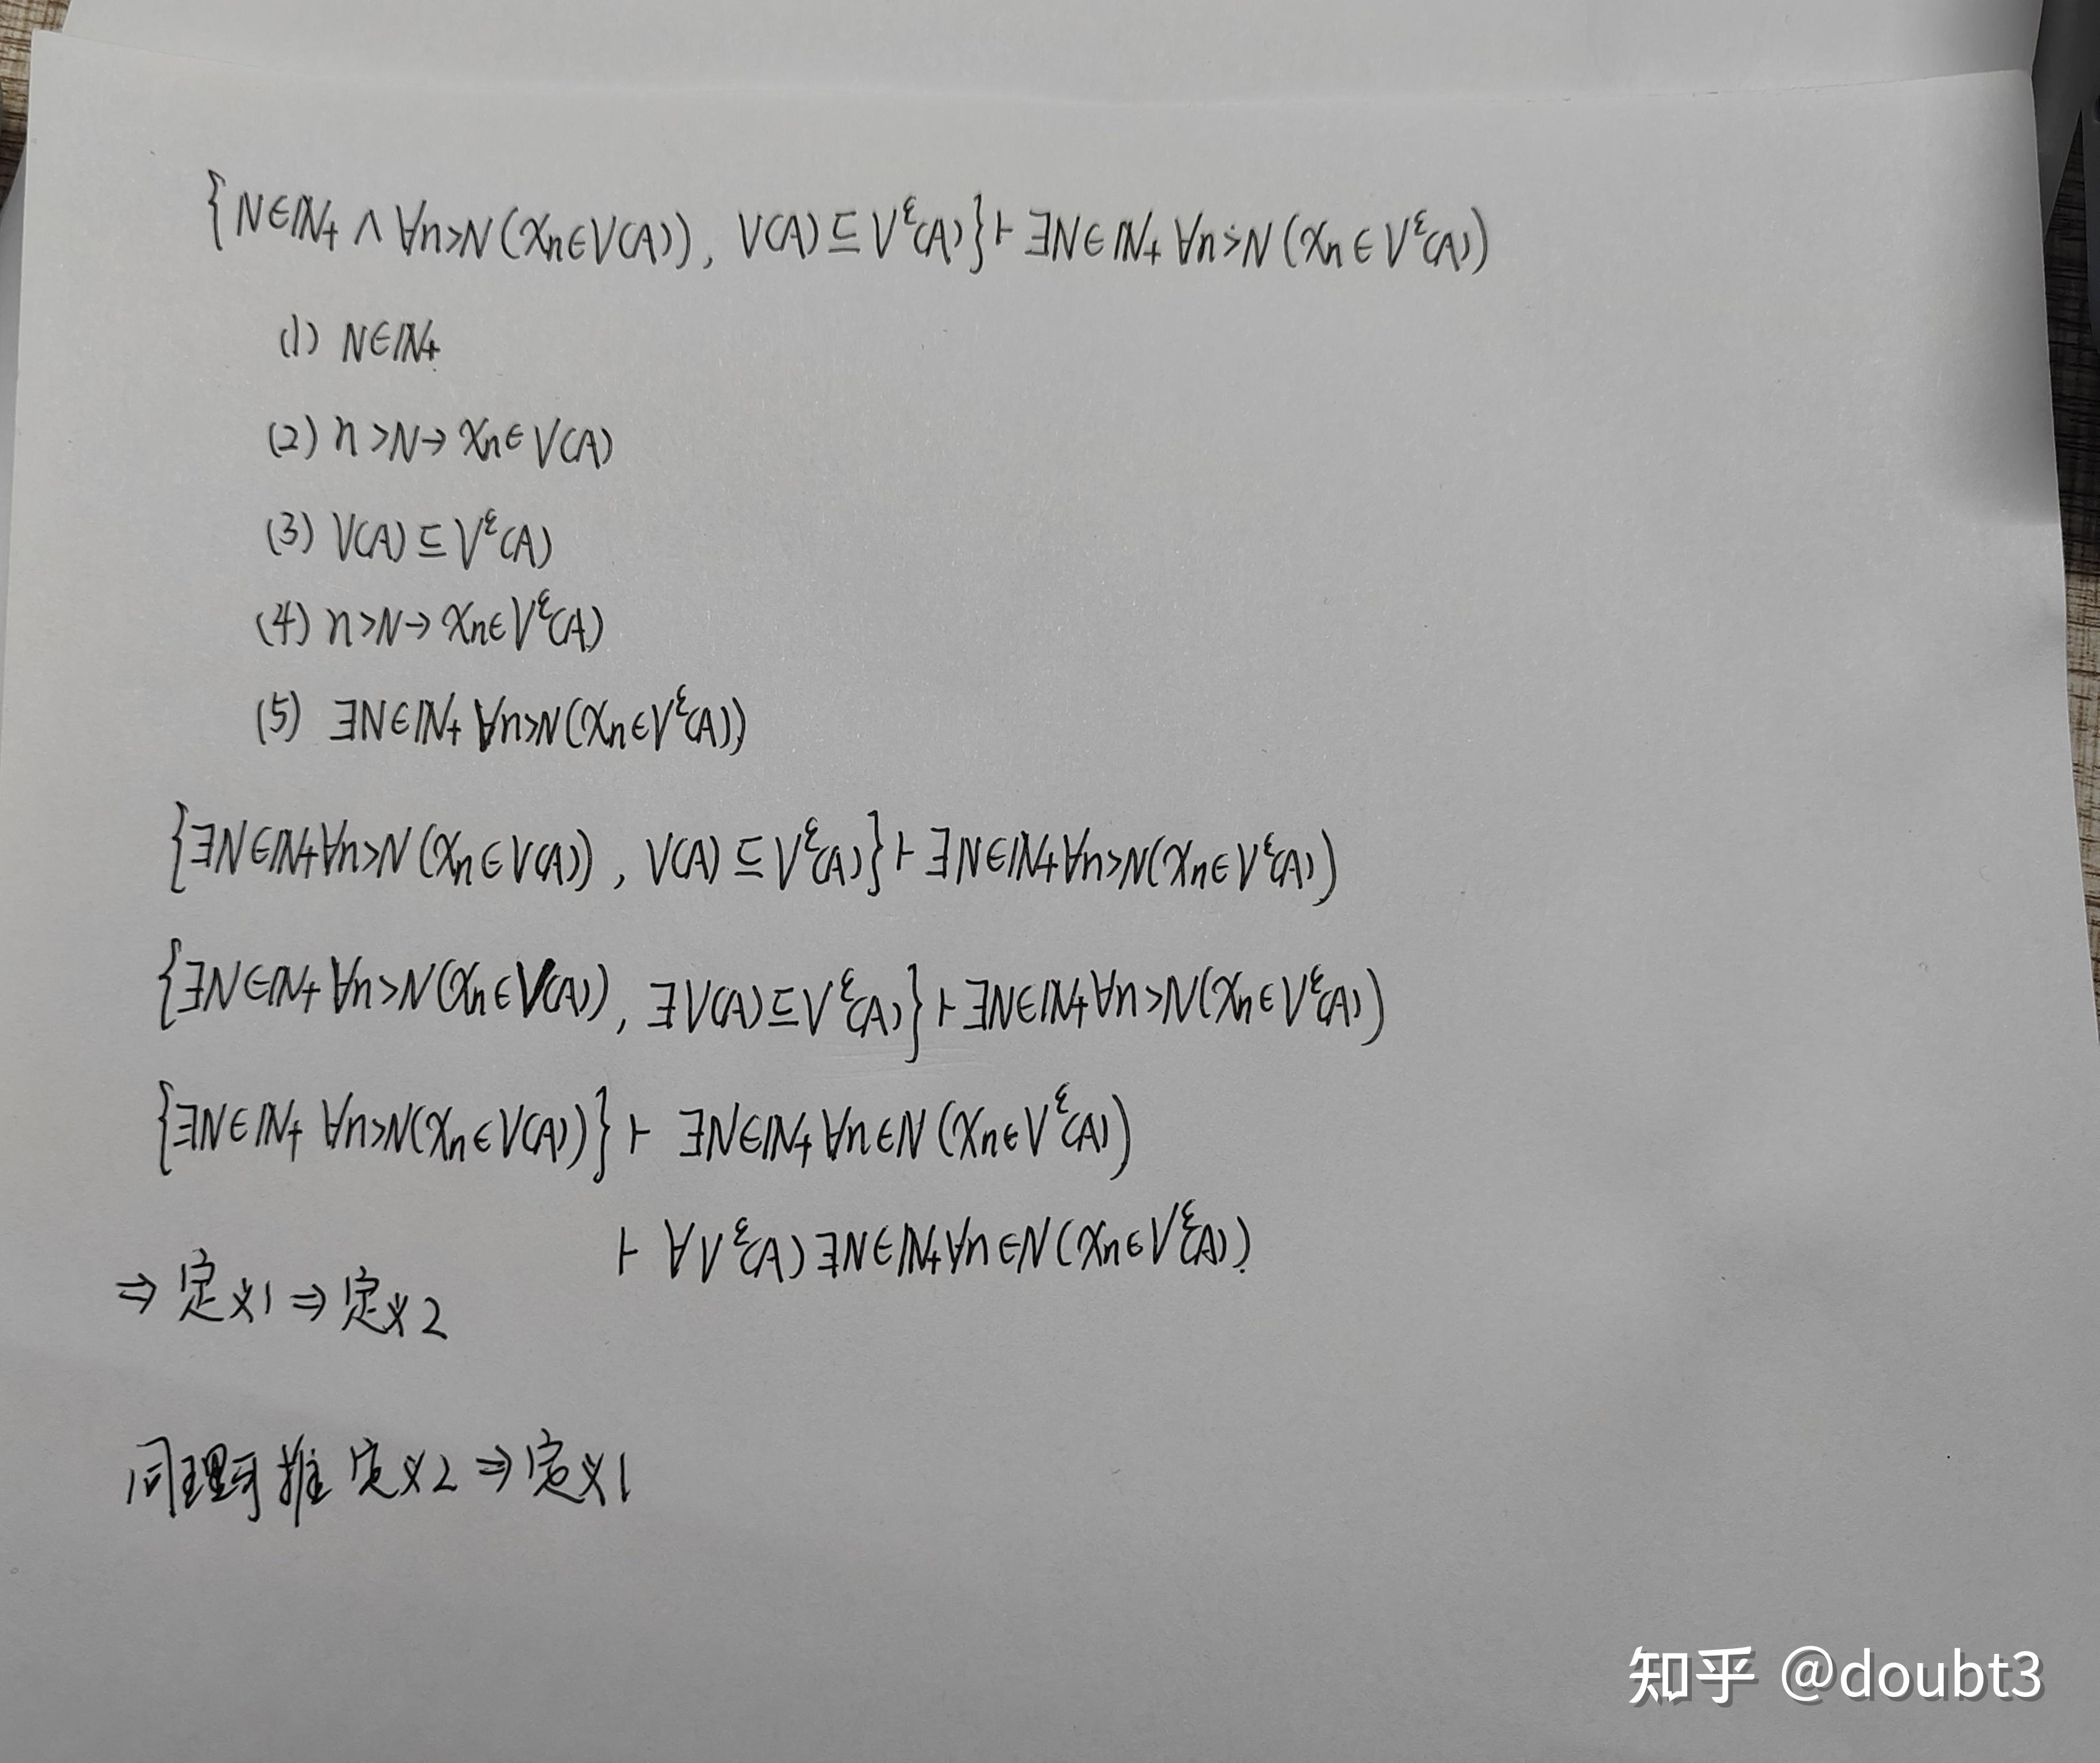 {N∈ℕ₊ ∧ ∀n>N(xₙ∈V(A)), V(A)⊆V^ε(A)}⊢∃N∈ℕ₊ ∀n>N(xₙ∈V^ε(A))
(1) N∈ℕ₊
(2) n>N→xₙ∈V(A)
(3) V(A)⊆V^ε(A)
(4) n>N→xₙ∈V^ε(A)
(5) ∃N∈ℕ₊ ∀n>N(xₙ∈V^ε(A))
{∃N∈ℕ₊∀n>N(xₙ∈V(A)), V(A)⊆V^ε(A)}⊢∃N∈ℕ₊∀n>N(xₙ∈V^ε(A))
{∃N∈ℕ₊∀n>N(xₙ∈V(A)), ∃V(A)⊆V^ε(A)}⊢∃N∈ℕ₊∀n>N(xₙ∈V^ε(A))
{∃N∈ℕ₊ ∀n>N(xₙ∈V(A))}⊢ ∃N∈ℕ₊∀n∈N(xₙ∈V^ε(A))
⊢ ∀V^ε(A)∃N∈ℕ₊∀n∈N(xₙ∈V^ε(A))
⇒定义1⇒定义2
同理可推 定义2⇒定义1
知乎 @doubt3